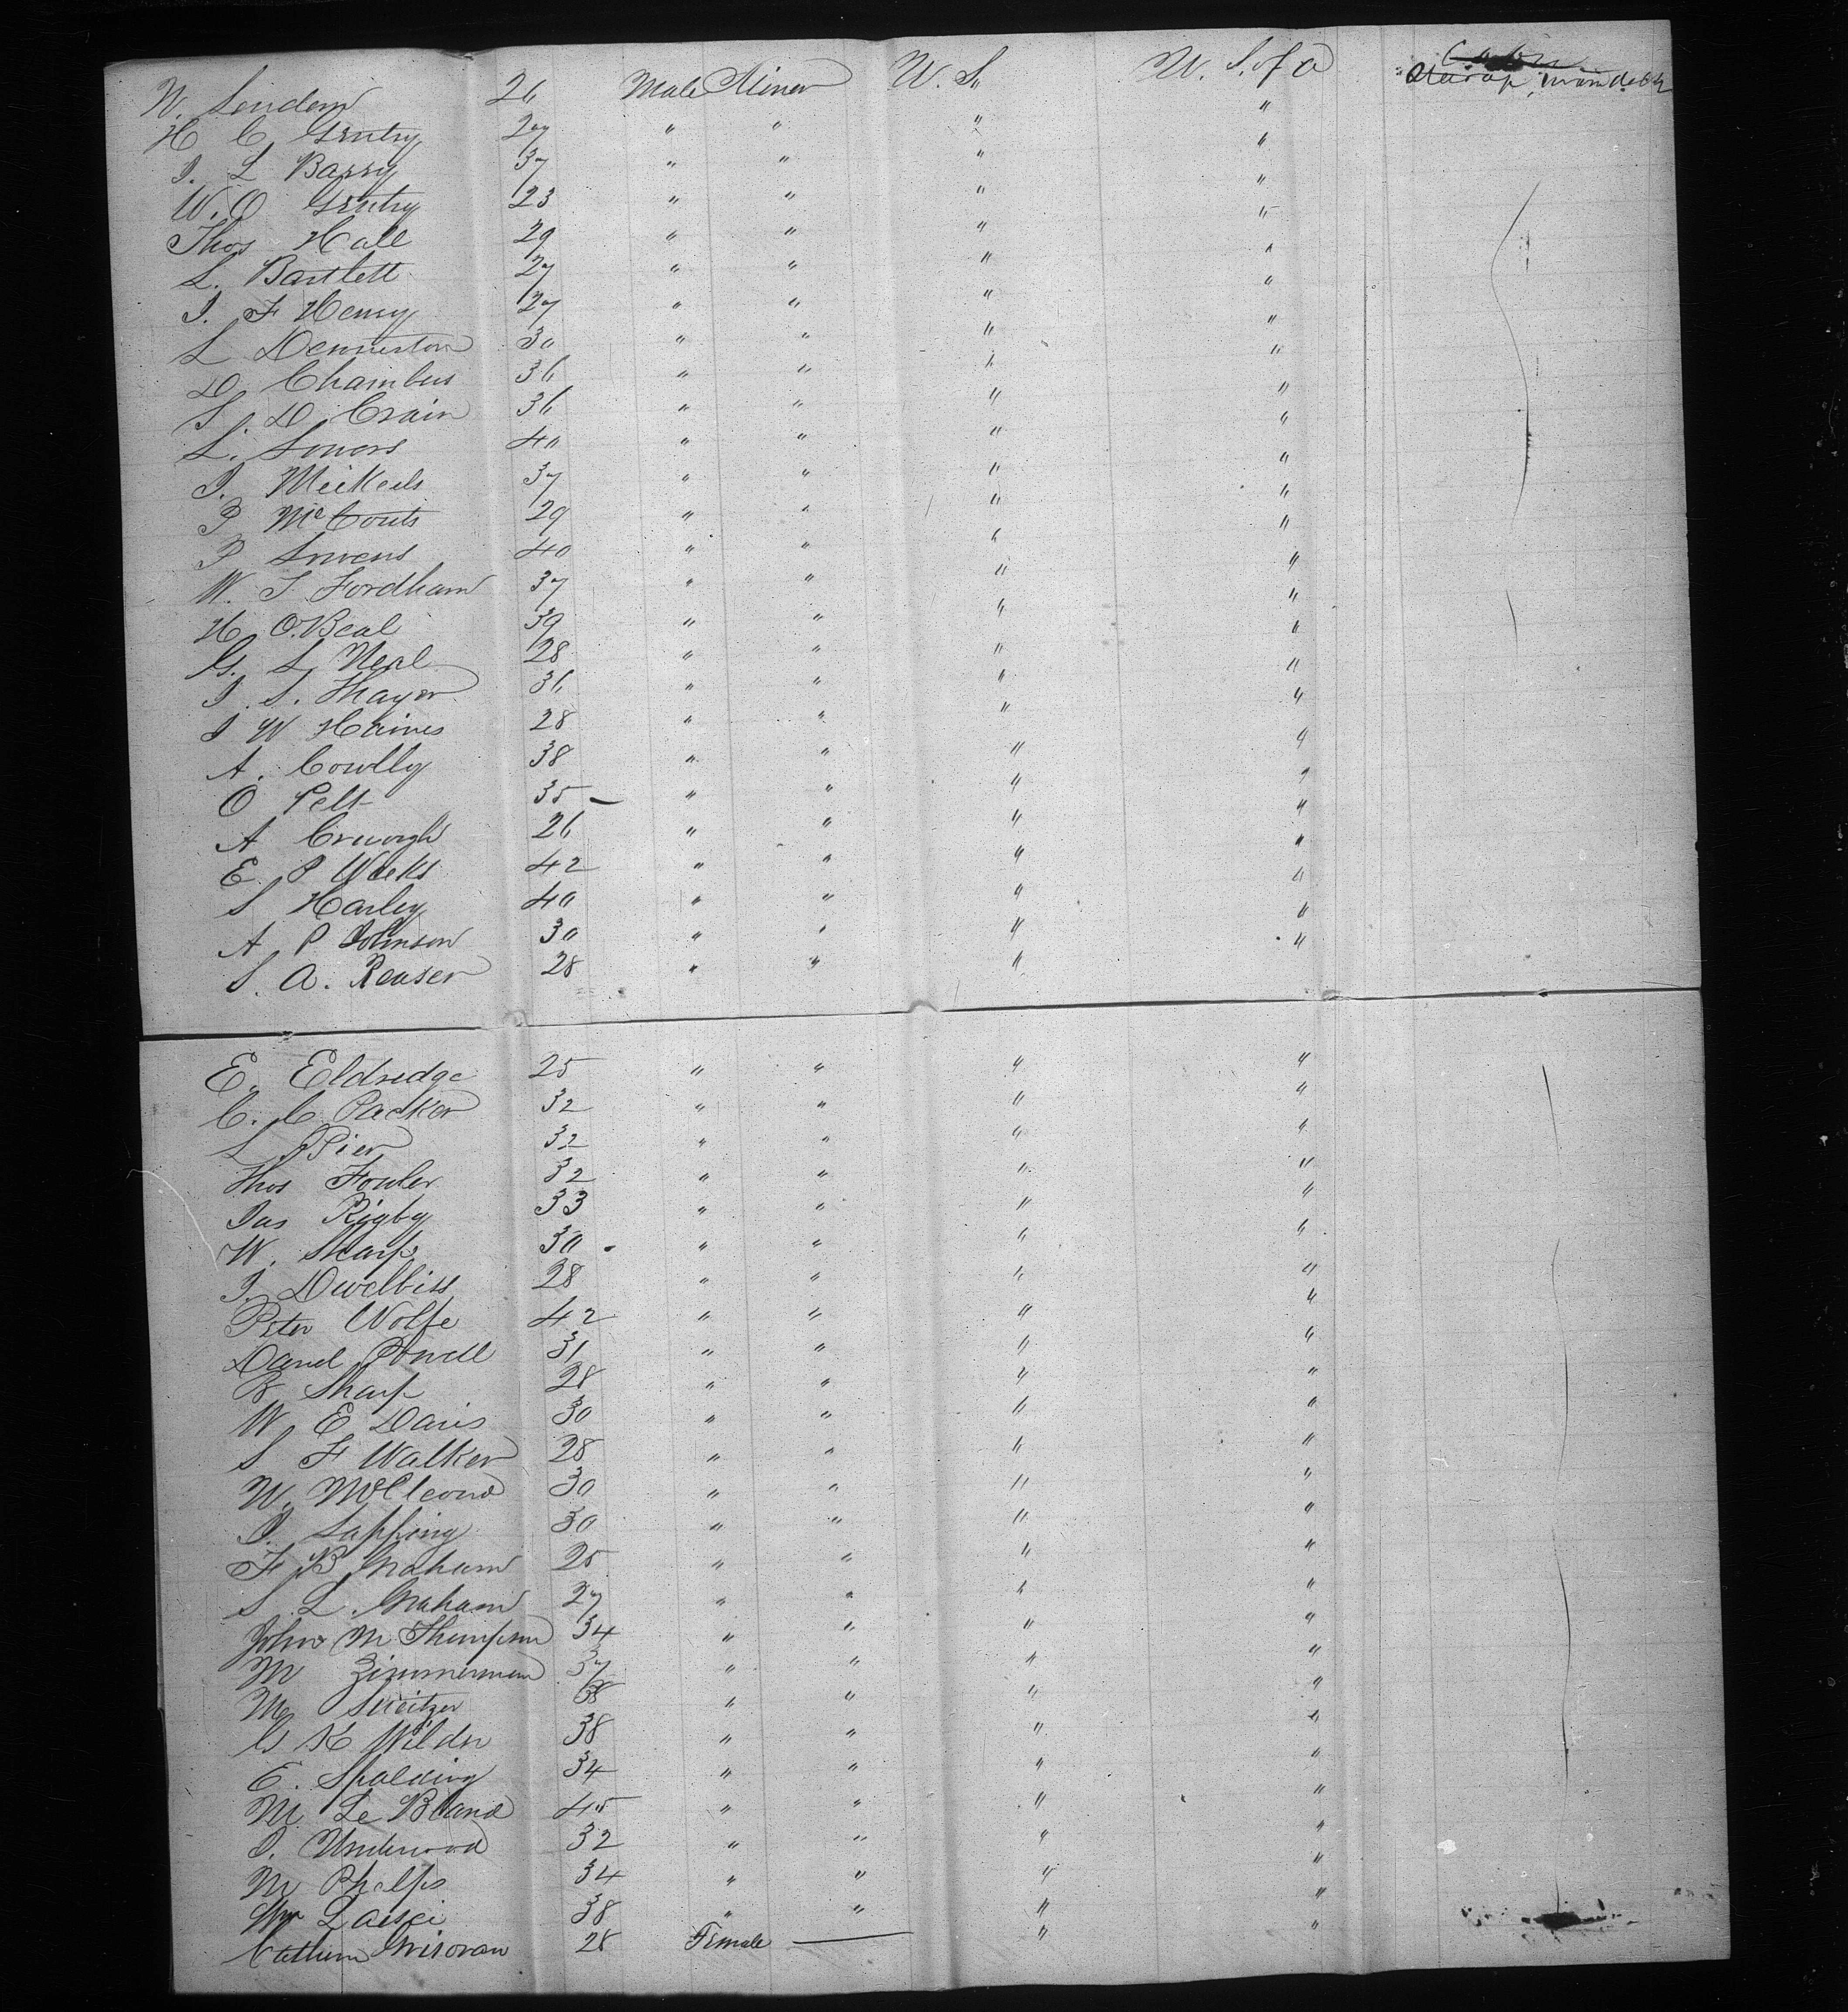 W. Loudern 26 Male Miner U.S. U. S. of A
H C Gentry 27 " " " "
J. L Barry 37 " " " "
W. O Gentry 23 " " " "
Thos Hall 29 " " " "
L. Bartlett 27 " " " "
J. F Henry 27 " " " "
L Denniston 30 " " " "
D Chambers 36 " " " "
S. D. Crain 36 " " " "
L. 40 " " " "
J. Meikeels 37 " " " "
P McCouts 29 " " " "
P 40 " " " "
W. S Fordham 37 " " " "
H O.Beal 39 " " " "
G. L Neal 28 " " " "
J. S. Thayer 36 " " " "
J W Haines 28 " " " "
A. Cowlly 38 " " " "
O Pelt 35 " " " "
A 26 " " " "
E. P Weeks 42 " " " "
S Harley 40 " " " "
A. P Johnson 30 " " " "
S. A. Reaser 28 " " " "
E. Eldredge 25 " " " "
C. C. Packer 32 " " " "
L Pier 32 " " " "
Thos Fowler 32 " " " "
Jas Rigby 33 " " " "
W. Sharp 30 " " " "
J. Dwelbiss 28 " " " "
Peter Wolfe 42 " " " "
Daniel Powell 31 " " " "
B Sharp 28 " " " "
W. E Davis 30 " " " "
S F Walker 28 " " " "
W. McCleond 30 " " " "
J. Lapping 30 " " " "
F B Graham 25 " " " "
S L. Graham 27 " " " "
John M Thompson 34 " " " "
M Zimmerman 37 " " " "
M Sweitzer 38 " " " "
G K Wilder 38 " " " "
E. Spalding 34 " " " "
M. Le Bland 45 " " " "
J. Underwood 32 " " " "
M Phelps 34 " " " "
Wm 38 " " " "
28 Female — " "